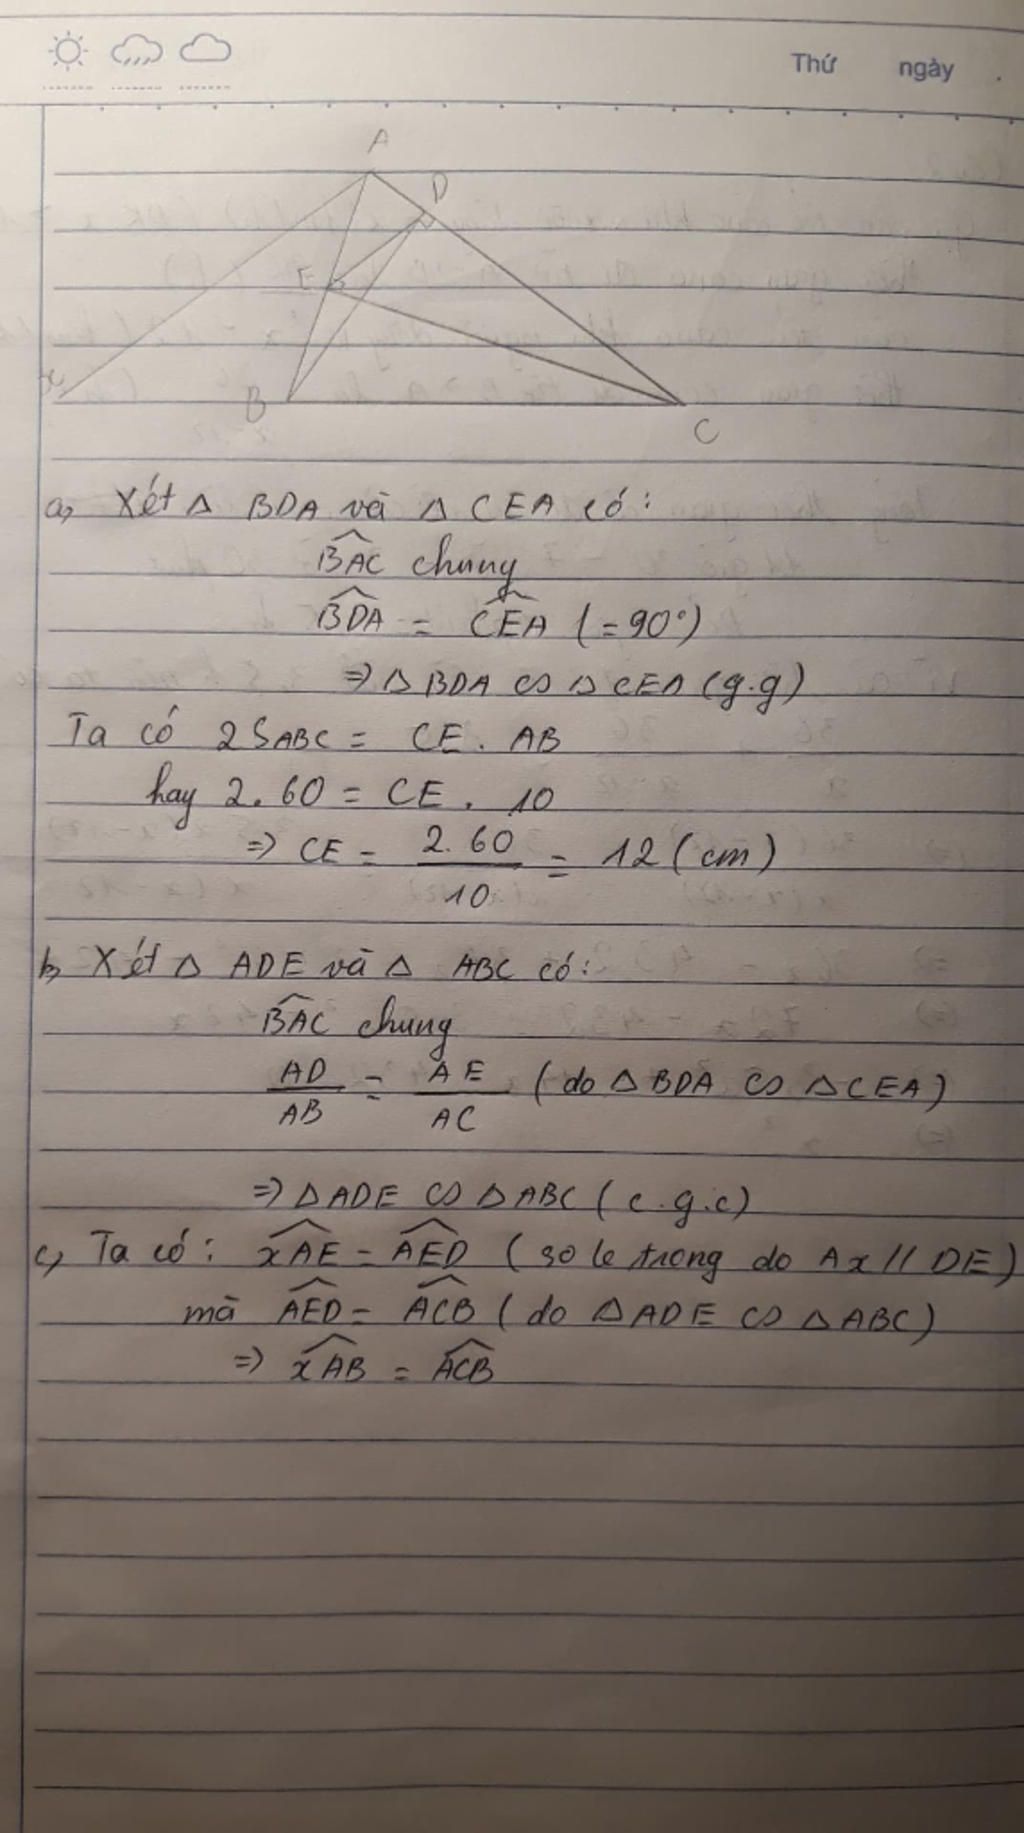 Thứ ngày .
A
D
E
x
B
C
a, Xét △ BDA và △ CEA có:
\widehat{BAC} chung
\widehat{BDA} = \widehat{CEA} (= 90°)
⇒ △ BDA ∽ △ CEA (g.g)
Ta có 2S_{ABC} = CE . AB
hay 2. 60 = CE . 10
⇒ CE = \frac{2. 60}{10} = 12 (cm)
b, Xét △ ADE và △ ABC có:
\widehat{BAC} chung
\frac{AD}{AB} = \frac{AE}{AC} (do △ BDA ∽ △ CEA)
⇒ △ ADE ∽ △ ABC ( c.g.c)
c, Ta có: \widehat{xAE} = \widehat{AED} ( so le trong do Ax // DE)
mà \widehat{AED} = \widehat{ACB} ( do △ ADE ∽ △ ABC)
⇒ \widehat{xAB} = \widehat{ACB}